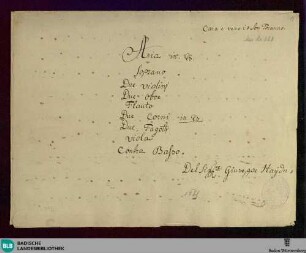 Aria in
Soprano
Due Violini
Due oboe
Flauto
Due Corni in
Due Fagotti
Viola
Contra Basso.
Del Sigre Giuseppe Haydn
BLB
BADISCHE
LANDESBIBLIOTHEK
Baden-Württemberg